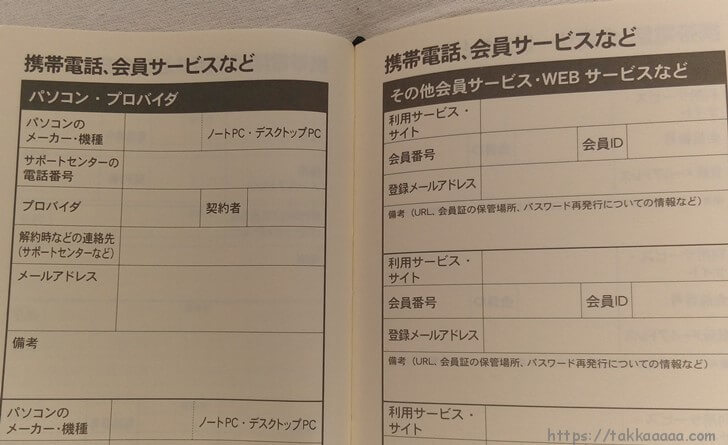 携帯電話、会員サービスなど
パソコン・プロバイダ
パソコンの
メーカー・機種
ノートPC・デスクトップPC
サポートセンターの
電話番号
プロバイダ
契約者
解約時などの連絡先
(サポートセンターなど)
メールアドレス
備考
パソコンの
メーカー・機種
ノートPC・デスクトップPC
携帯電話、会員サービスなど
その他会員サービス・WEB サービスなど
利用サービス・
サイト
会員番号
会員ID
登録メールアドレス
備考（URL、会員証の保管場所、パスワード再発行についての情報など）
利用サービス・
サイト
会員番号
会員ID
登録メールアドレス
備考（URL、会員証の保管場所、パスワード再発行についての情報など）
利用サービス・
サイト
https://takkaaaaa.com/